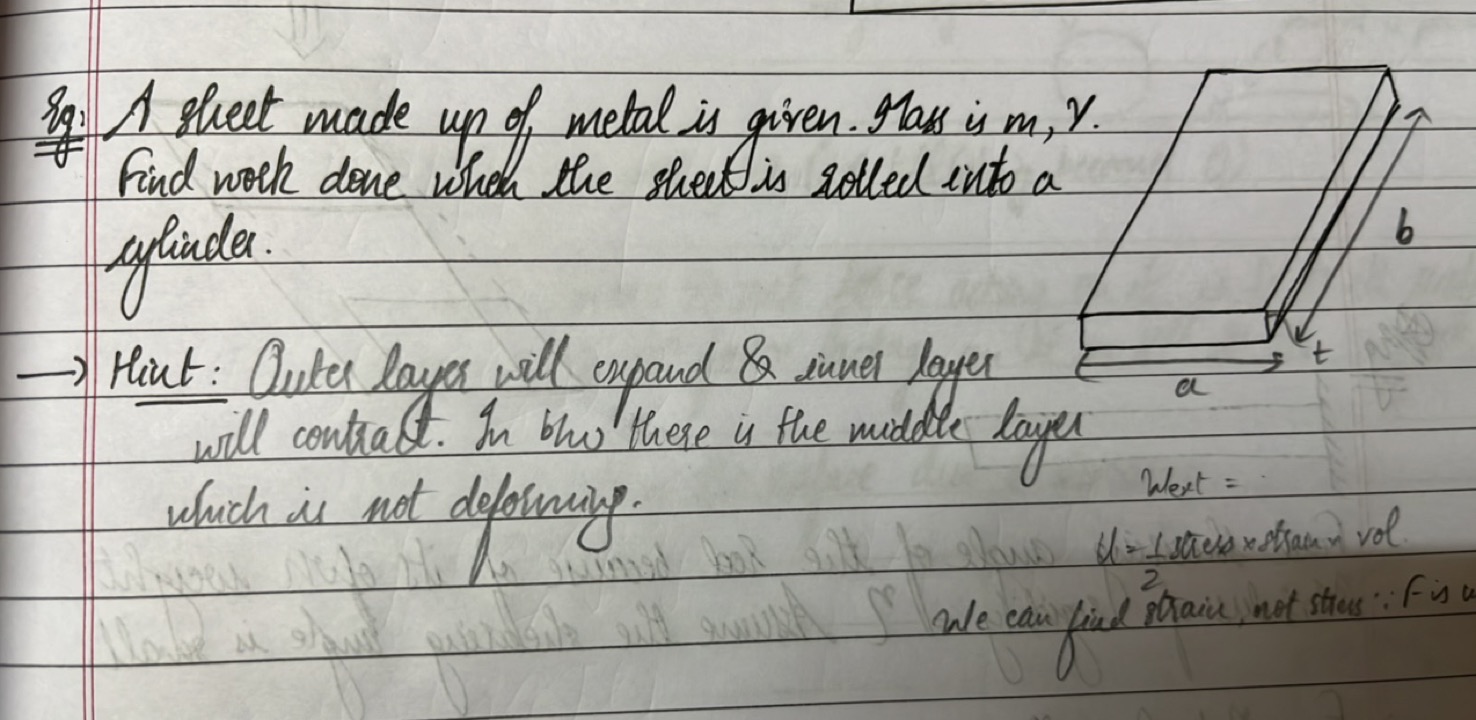 Eg: A sheet made up of metal is given. Mass is m, Y.
Find work done when the sheet is rolled into a
cylinder.
b
t
a
→ Hint: Outer layer will expand & inner layer
will contract. In b/w there is the middle layer
which is not deforming.
Wext =
U = 1/2 stress × strain × vol.
We can find strain, not stress ∵ F is